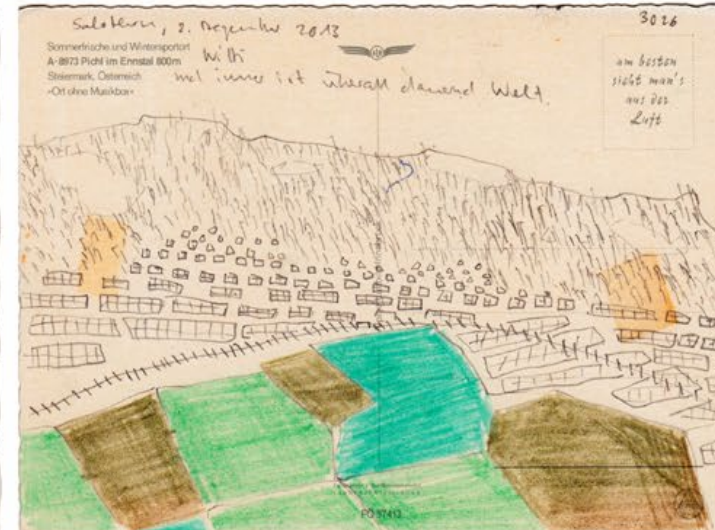 2. Dezember 2013
3026
Sommerfrische und Wintersportort
A-8973 Pichl im Ennstal 800m
Steiermark, Österreich
»Ort ohne Musikbox«
und immer ist überall dauernd Welt.
am besten
sieht man's
aus der
Luft